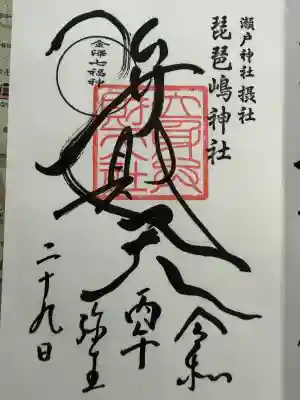 瀬戸神社 摂社
琵琶嶋神社
金澤七福神
弁財天
令和
丙午
弥生
二十九日